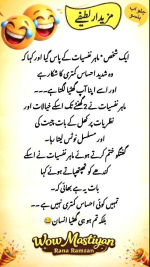 مزیدار لطیفے
ایک شخص، ماہر نفسیات کے پاس گیا اور کہا کہ
وہ شدید احساس کمتری کا شکار ہے
اور اسے اپنا آپ گھٹیا لگتا ہے۔۔۔
ماہر نفسیات نے 2 گھنٹے تک اسکے خیالات اور
نظریات پر کھل کے بات چیت کی
اور مسلسل نوٹس لیتا رہا۔
گفتگو ختم کرتے ہوئے ماہر نفسیات نے اسکے
کندھے کو تھپتھپاتے ہوئے کہا
بات یہ ہے بھائی کہ۔
تمہیں کوئی احساس کمتری نہیں ہے ۔۔۔
بلکہ تم ہو ہی گھٹیا انسان😂
Wow Mastiyan
Rana Ramzan